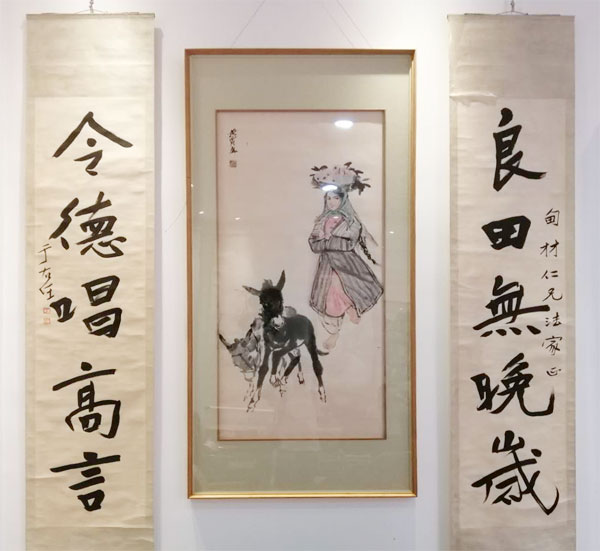 良田無晚歲
甸材仁兄法家正
黄胄
令德唱高言
于右任